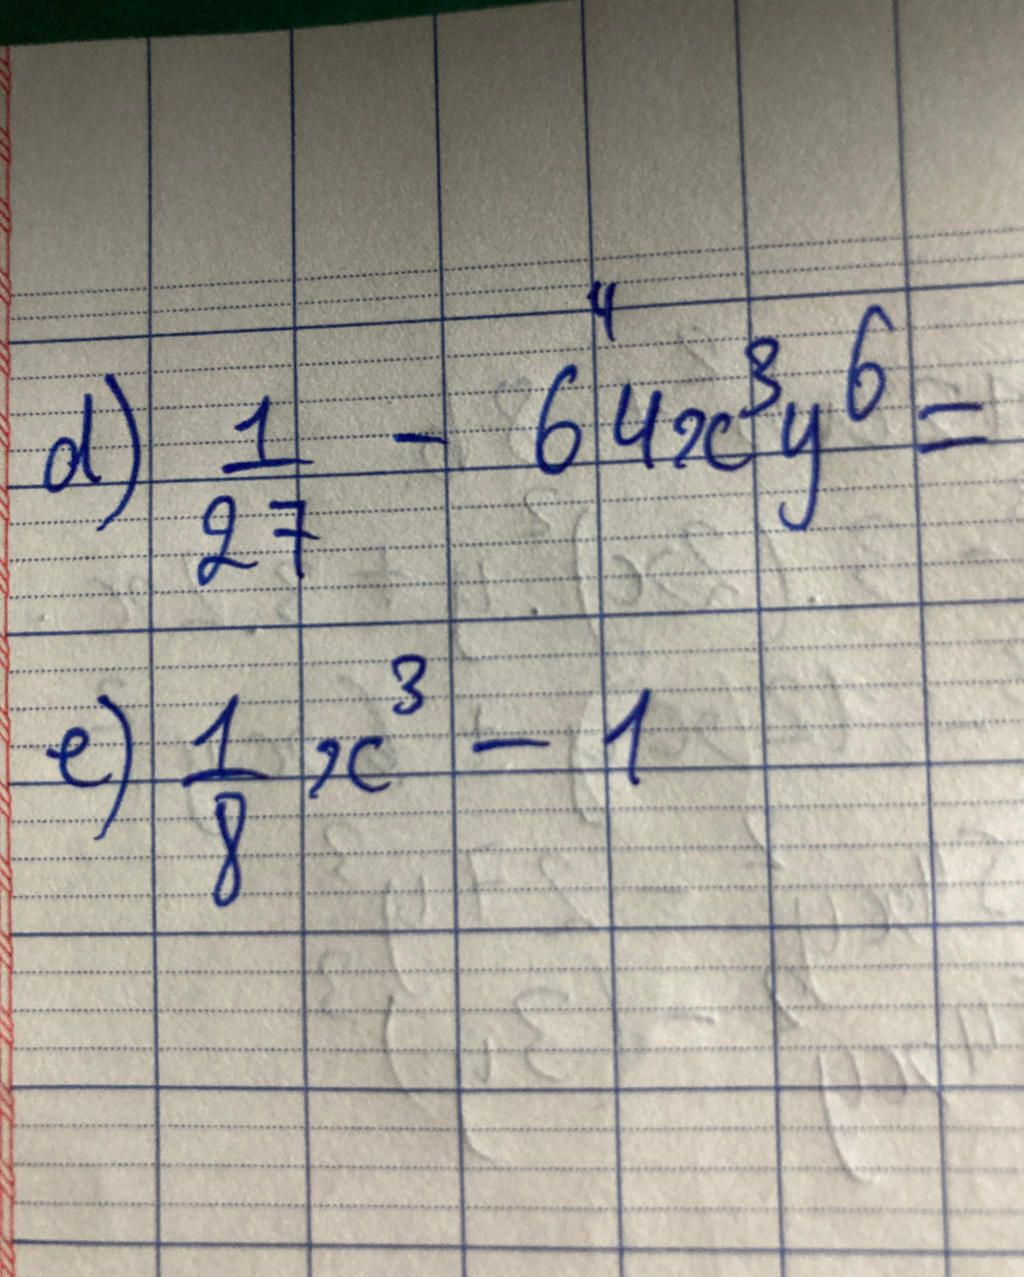 4
d) 1/27 - 64x³y⁶ =
e) 1/8 x³ - 1